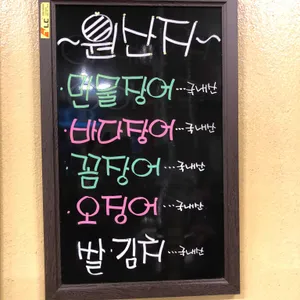 ~원산지~
·민물장어...국내산
·바다장어...국내산
·꼼장어...국내산
·오징어...국내산
쌀·김치...국내산